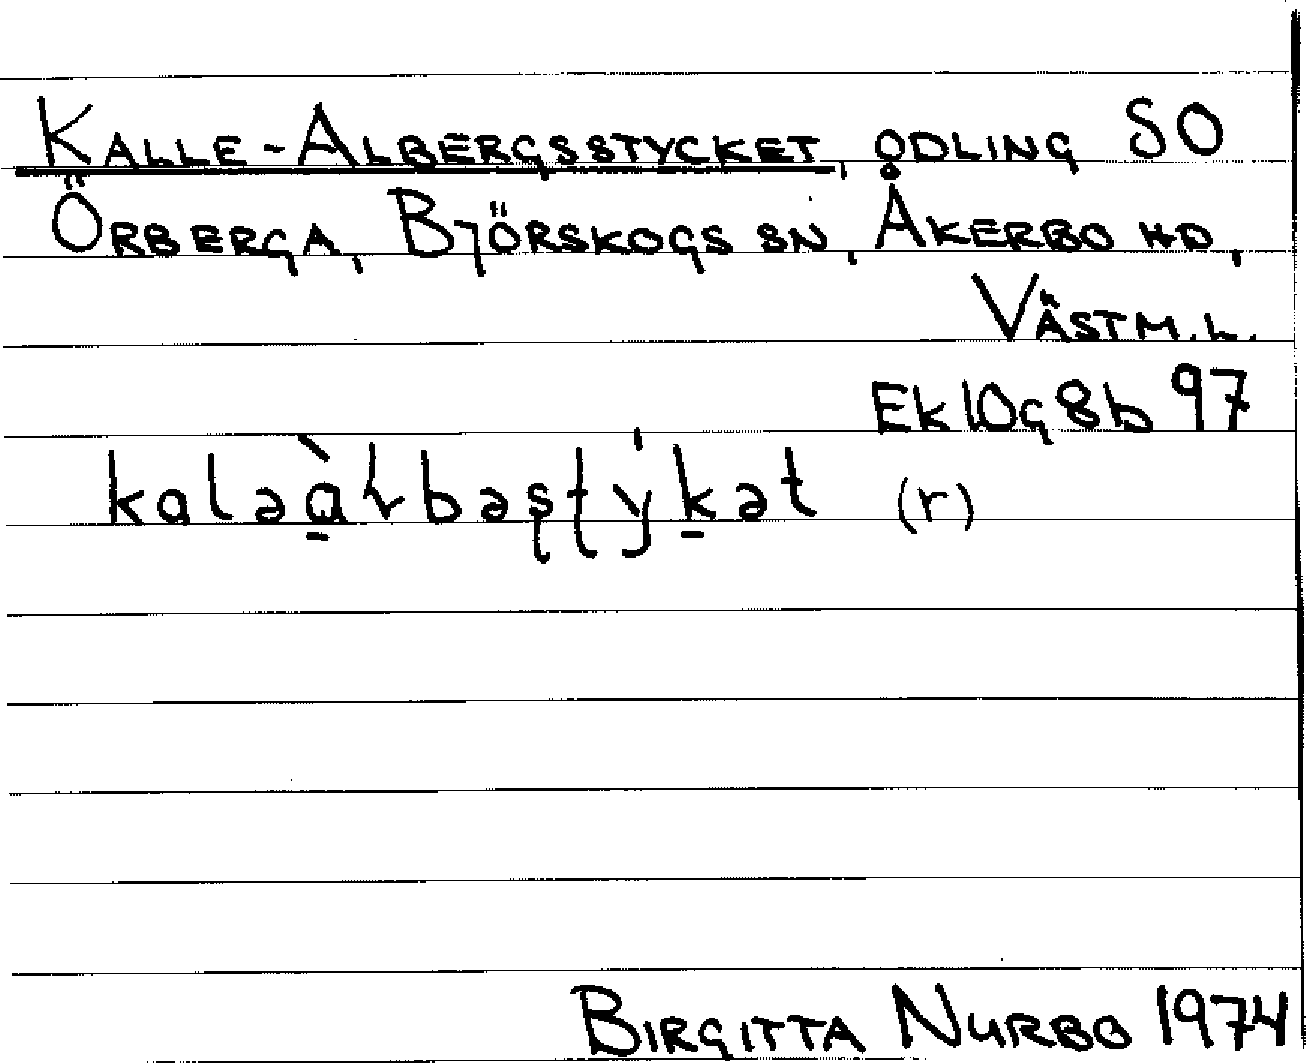 Kalle-Albergsstycket, odling SO
Örberga, Björskogs sn, Åkerbo hd,
Västm.l.
Ek 10g8b 97
(r)
Birgitta Nurbo 1974